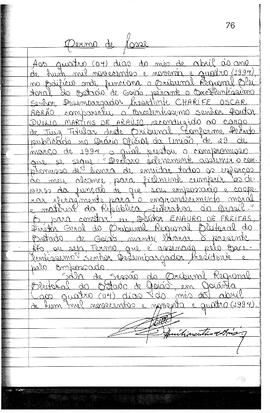 76
Termo de Posse
Aos quatro (04) dias do mês de abril do ano
de hum mil novecentos e noventa e quatro (1994),
no Edifício onde funciona o Tribunal Regional Elei-
toral do Estado de Goiás, perante o Excelentíssimo
Senhor Desembargador Presidente CHARIFE OSCAR
ABRÃO compareceu o Excelentíssimo Senhor Doutor
MARTINS DE ARAÚJO, reconduzido ao cargo
de Juiz Titular deste Tribunal, conforme Decreto
publicado no Diário Oficial da União de 29 de
março de 1994, o qual prestou o compromisso
que se segue: "Declaro solenemente assumir o com-
promisso de honra de envidar todos os esforços
ao meu alcance para fielmente cumprir os de-
veres da função de que sou empossado e coope-
rar eficazmente para o engrandecimento moral
e material da República Federativa do Brasil."
E para constar eu, ENAURO DE FREITAS,
Diretor Geral do Tribunal Regional Eleitoral do
Estado de Goiás, mandei lavrar o presente
Termo, que é assinado pelo Exce-
lentíssimo Senhor Desembargador Presidente e
pelo empossado.
Sala de Sessão do Tribunal Regional
Eleitoral do Estado de Goiás, em Goiânia
aos quatro (04) dias do mês de abril
de hum mil novecentos e noventa e quatro (1994).